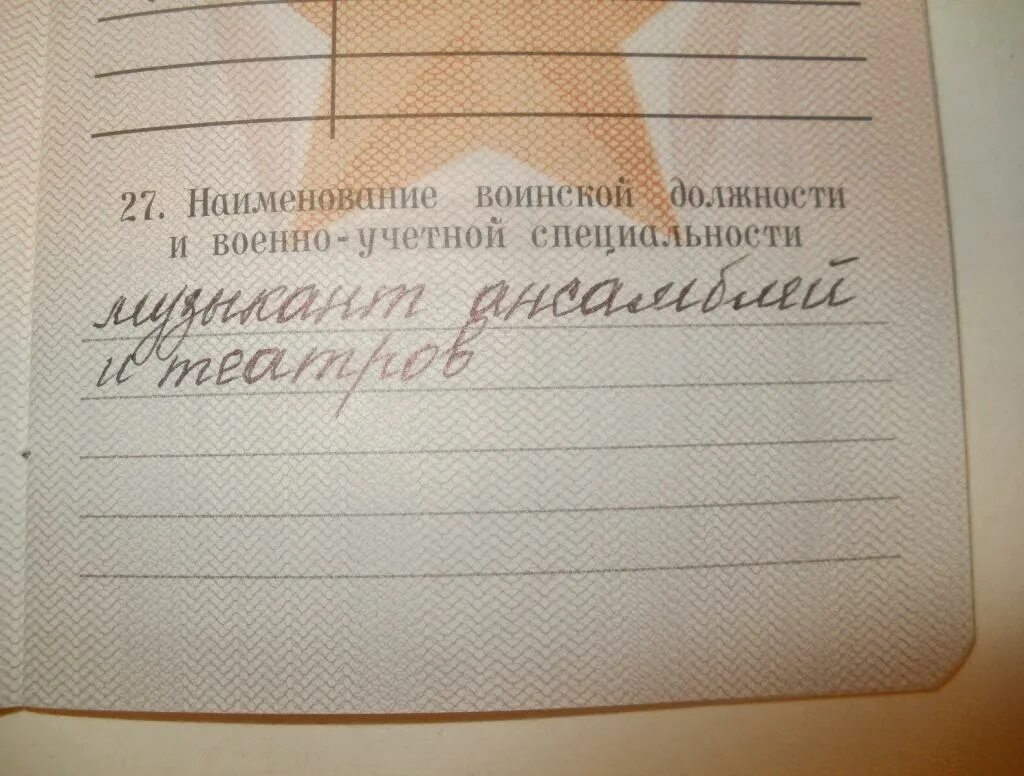 27. Наименование воинской должности
и военно-учетной специальности
музыкант ансамблей
и театров